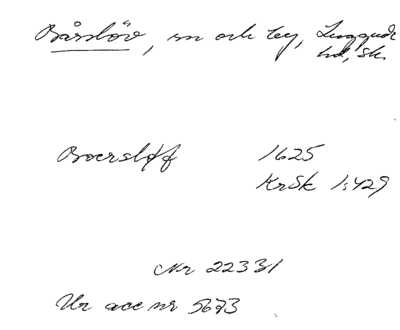 Bårslöv, sn och by, Luggude
hd, Sk.
Boersløff 1625
KrSk 1:429
Nr 22331
Ur acc nr 5673